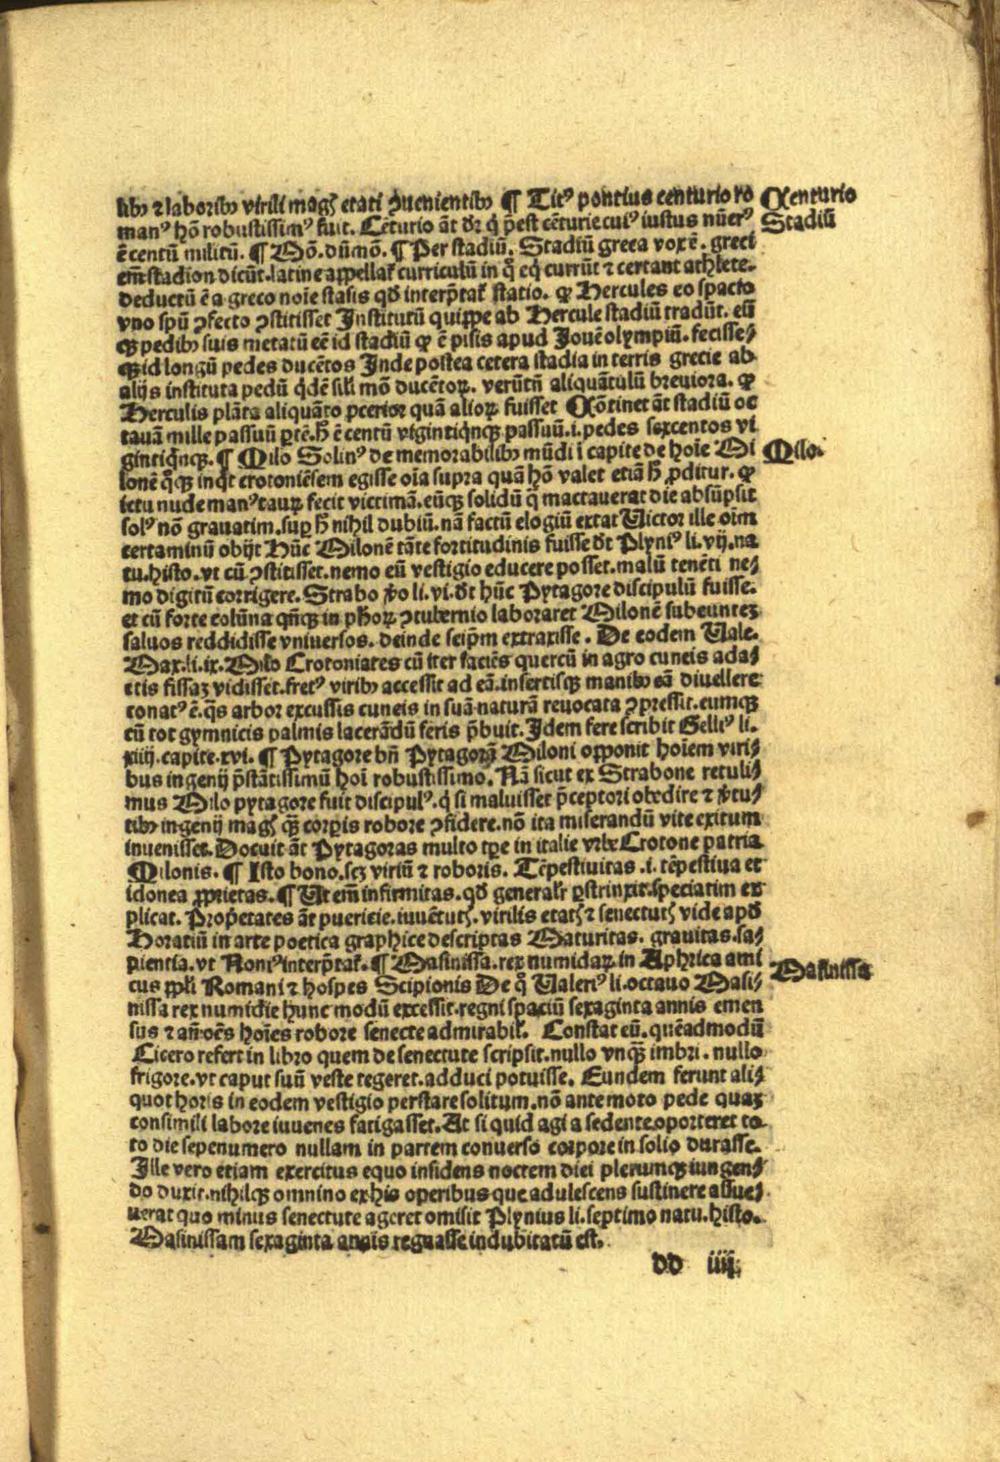 libꝫ ⁊ laboribꝫ virili magꝭ etati ꝯuenientibꝫ ¶ Titꝰ pontius centurio ro
Centurio
manꝰ hõ robustissimꝰ fuit. Cẽturio ãt dr̃ q̇ p̃est cẽturie cuiꝰ iustus nũerꝰ
Stadiũ
ẽ centũ militũ. ¶ Mõ. dũmõ. ¶ Per stadiũ. Stadiũ greca vox ẽ. greci
em̃ stadion dicũt. latine appellat̃ curriculũ in q̃ eq̇ currũt ⁊ certant athlete.
deductũ ẽ a greco noĩe stasis qđ interp̃tat̃ statio. ꝙ Hercules eo spacio
vno spũ ꝯfecto ꝯstitisset Institutũ quippe ab Hercule stadiũ tradũt. eũ
qꝫ pedibꝫ suis metatũ eẽ id stadiũ ꝙ ẽ pisis apud Jouẽ olympiũ. fecisse⸗
qꝫ id longũ pedes ducẽtos Inde postea cetera stadia in terris grecie ab
alijs instituta pedũ q̇dẽ sili mõ ducẽtoꝝ. verũtñ aliquãtulũ breuiora. ꝙ
Herculis plãta aliquãto ꝓcerior quã alioꝝ fuisset Cõtinet ãt stadiũ oc
tauã mille passuũ ꝑtẽ. h̃ ẽ centũ vigintiq̇nqꝫ passuũ. i. pedes sexcentos vi
gintiq̇nqꝫ. ¶ Milo Solinꝰ de memorabilibꝫ mũdi ĩ capite de hoĩe Mi
Milo.
lonẽ q̃qꝫ inq̇t crotoniẽsem egisse oĩa supra quã hõ valet etiã h̃ ꝓditur. ꝙ
ictu nude manꝰ tauꝝ fecit victimã. eũqꝫ solidũ q̃ mactauerat die absũpsit
solꝰ nõ grauatim. suꝑ h̃ nihil dubiũ. nã factũ elogiũ extat Victor ille oĩm
certaminũ obijt Hũc Milonẽ tãte fortitudinis fuisse đt Plyniꝰ li. vij. na
tu. histo. vt cũ ꝯstitisset. nemo eũ vestigio educere posset. malũ tenẽti ne⸗
mo digitũ corrigere. Strabo ꝟo li. vi. đt hũc Pytagore discipulũ fuisse.
et cũ forte colũna qñqꝫ in pħoꝝ ꝯtubernio laboraret Milonẽ subeuntez
saluos reddidisse vniuersos. deinde seip̃m extraxisse. De eodem Vale.
Max. li. ix. Milo Crotoniates cũ iter faciẽs quercũ in agro cuneis ada⸗
ctis fissaz vidisset. fretꝰ viribꝫ accessit ad eã. insertisqꝫ manibꝫ eã diuellere
conatꝰ ẽ. q̃s arbor excussis cuneis in suã naturã reuocata ꝯpressit. eumqꝫ
cũ tot gymnicis palmis lacerãdũ feris p̃buit. Idem fere scribit Gelliꝰ li.
xiiij. capite. xvi. ¶ Pytagore bñ Pytagorã Miloni opponit hoĩem viri⸗
bus ingenij p̃stãtissimũ hoĩ robustissimo. Nã sicut ex Strabone retuli⸗
mus Milo pytagore fuit discipulꝰ. q̇ si maluisset p̃ceptori obedire ⁊ ꝟtu⸗
tibꝫ ingenij magꝭ qꝫ̃ corꝑis robore ꝯfidere. nõ ita miserandũ vite exitum
inuenisset. Docuit ãt Pytagoras multo tꝑe in italie vrbe Crotone patria
Milonis. ¶ Isto bono. scꝫ viriũ ⁊ roboris. Tẽpestiuitas. i. tẽpestiua et
idonea ꝓprietas. ¶ Vt em̃ infirmitas. qđ generalr̃ ꝑstrinxit. speciatim ex
plicat. Propetates ãt puericie. iuuẽtutꝭ. virilis etatꝭ ⁊ senectutꝭ vide apđ
Horatiũ in arte poetica graphice descriptas Maturitas. grauitas. sa⸗
pientia. vt Noniꝰ interp̃tat̃. ¶ Masinissa. rex numidaꝝ in Aphrica ami
Masinissa
cus ppl̃i Romani ⁊ hospes Scipionis De q̃ Valeriꝰ li. octauo Masi⸗
nissa rex numidie hunc modũ excessit. regni spaciũ sexaginta annis emen
sus ⁊ añ oẽs hoĩes robore senecte admirabil̃. Constat eũ. quẽadmodũ
Cicero refert in libro quem de senectute scripsit. nullo vnqꝫ̃ imbri. nullo
frigore. vt caput suũ veste tegeret. adduci potuisse. Eundem ferunt ali⸗
quot horis in eodem vestigio perstare solitum. nõ ante moto pede quaz
consimili labore iuuenes fatigasset. At si quid agi a sedente oporteret to
to die sepenumero nullam in partem conuerso corpore in solio durasse.
Ille vero etiam exercitus equo insidens noctem diei plerumqꝫ iungen⸗
do duxit. nihilqꝫ omnino ex his operibus que adulescens sustinere assue⸗
uerat quo minus senectute ageret omisit Plynius li. septimo natu. histo.
Masinissam sexaginta annis regnasse indubitatũ est.
dd iiij.